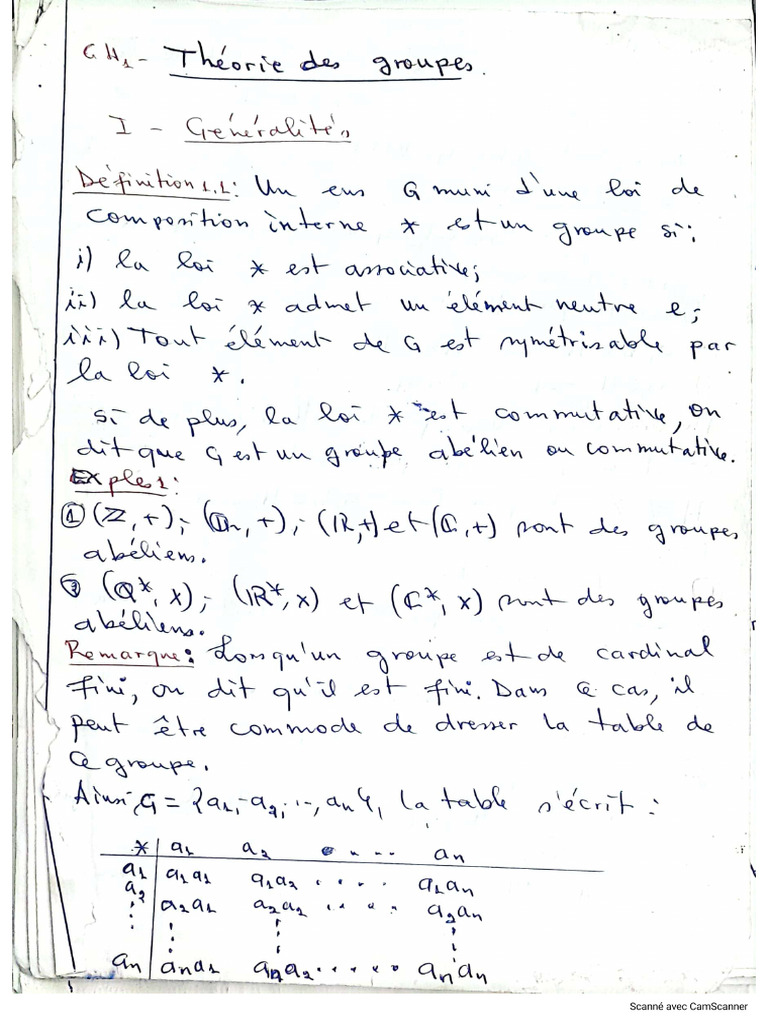 CH1 - Théorie des groupes.
I - Généralités
Définition 1.1: Un ens G muni d'une loi de
composition interne * est un groupe si:
i) la loi * est associative;
ii) la loi * admet un élément neutre e;
iii) Tout élément de G est symétrisable par
la loi *.
si de plus, la loi * est commutative, on
dit que G est un groupe abélien ou commutative.
Exples 1:
① (ℤ, +); (ℚ, +); (ℝ, +) et (ℂ, +) sont des groupes
abéliens.
② (ℚ*, x); (ℝ*, x) et (ℂ*, x) sont des groupes
abéliens.
Remarque: Lorsqu'un groupe est de cardinal
fini, on dit qu'il est fini. Dans ce cas, il
peut être commode de dresser la table de
ce groupe.
Ainsi, G = {a1, a2, ..., an}, la table s'écrit :
* | a1 a2 .... an
a1 | a1a1 a1a2 ..... a1an
a2 | a2a1 a2a2 ..... a2an
an | ana1 ana2 ...... anan
Scanné avec CamScanner